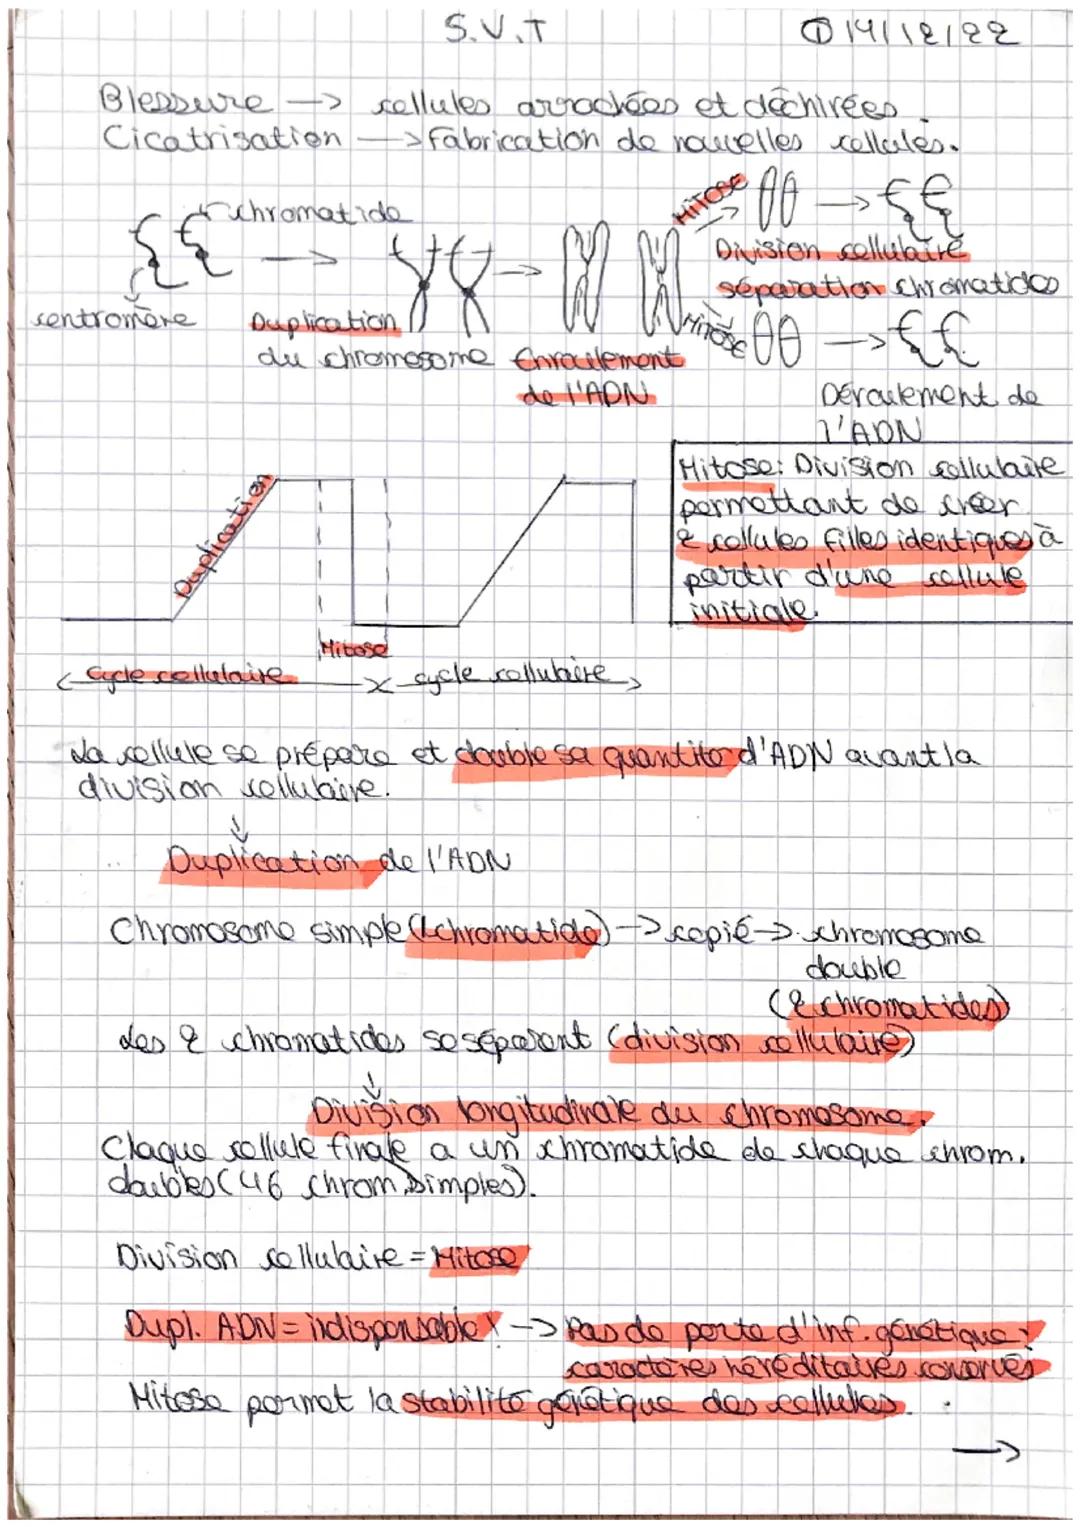 S.V.T ① 14/12/22
Blessure -> cellules arrachées et déchirées.
Cicatrisation -> Fabrication de nouvelles cellules.
chromatide
centromère
Duplication
du chromosome
Enroulement
de l'ADN
Mitose
Division cellulaire
séparation chromatides
Mitose
Déroulement de
l'ADN
Mitose: Division cellulaire
permettant de créer
2 cellules filles identiques à
partir d'une cellule
initiale.
Duplication
Mitose
cycle cellulaire
cycle cellulaire
La cellule se prépare et double sa quantité d'ADN avant la
division cellulaire.
Duplication de l'ADN
Chromosome simple (1 chromatide) -> copié -> chromosome
double
(2 chromatides)
Les 2 chromatides se séparent (division cellulaire)
Division longitudinale du chromosome.
Chaque cellule finale a un chromatide de chaque chrom.
doubles (46 chrom. simples).
Division cellulaire = Mitose
Dupl. ADN = indispensable -> Pas de perte d'inf. génétique:
caractères héréditaires conservés
Mitose permet la stabilité génétique des cellules.
->